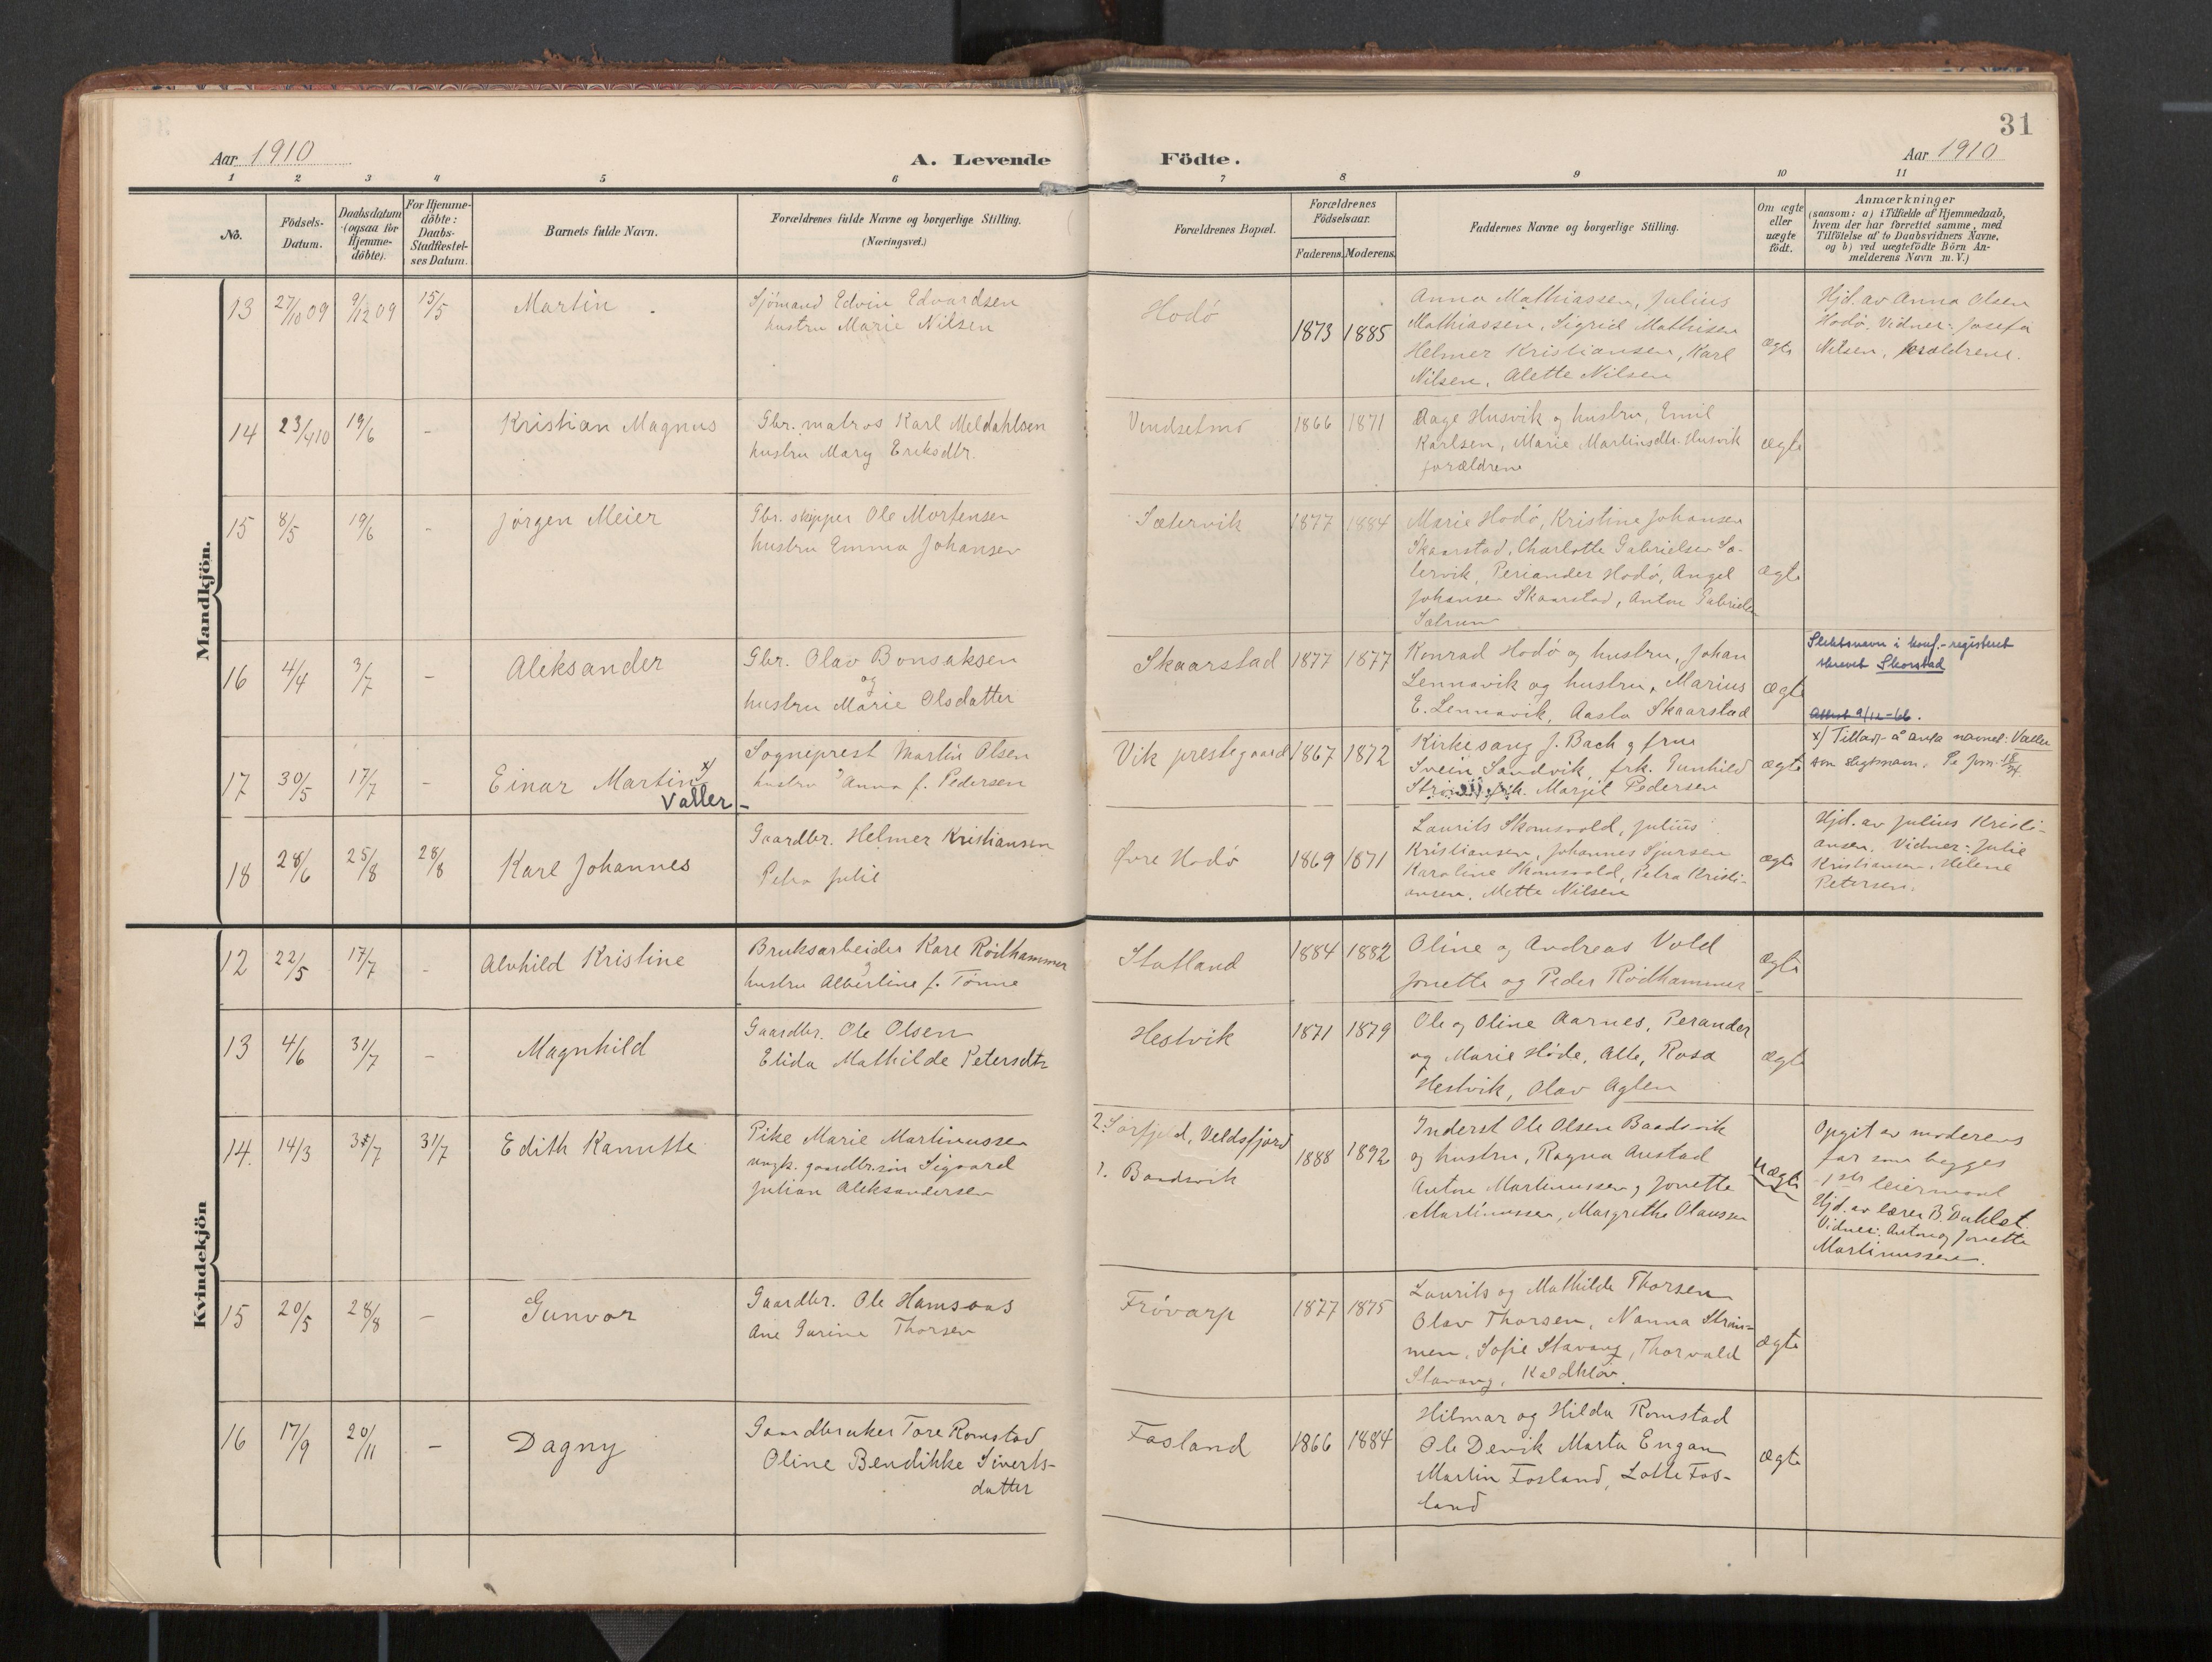 31
Aar 1910
A. Levende Födte.
Aar 1910
1 2 3 4 5 6 7 8 9 10 11
No.
Födsels-Datum.
Daabsdatum (ogsaa for Hjemme-döbte).
For Hjemme-döbte: Daabs-Stadfæstel-ses Datum.
Barnets fulde Navn.
Forældrenes fulde Navne og borgerlige Stilling.
(Næringsvei.)
Forældrenes Bopæl.
Forældrenes Födselsaar.
Faderens. Moderens.
Faddernes Navne og borgerlige Stilling.
Om ægte eller uægte födt.
Anmærkninger
(saasom: a) i Tilfælde af Hjemmedaab,
hvem der har forrettet samme, med
Tilföielse af to Daabsvidners Navne,
og b) ved uægtefödte Börn An-
melderens Navn m. V.)
Mandkjön.
13 27/10 09 9/12 09 15/5 Martin
Sjömand Edvin Edvardsen
hustru Marie Nilsen
Hodö 1873 1885
Anna Mathiassen, Julius
Mathiassen, Sigrid Mathisen
Helmer Kristiansen, Karl
Nilsen, Alette Nilsen
ægte
Hjd. av Anna Olsen
Hodö. Vidner: Josefa
Nilsen, forældrene.
14 23/4 10 19/6 - Kristian Magnus
Gbr. matros Karl Meldahlsen
hustru Mary Eriksdtr.
Vendsetmo 1866 1871
Aage Husvik og hustru, Emil
Karlsen, Marie Martinsdtr. Husvik
forældrene
ægte
15 8/5 19/6 - Jörgen Meier
Gbr. skipper Ole Mortensen
hustru Emma Johansen
Sætervik 1877 1884
Marie Hodö, Kristine Johansen
Skaarstad, Charlotte Gabrielsen Sæ-
tervik, Periander Hodö, Angel
Johansen Skaarstad, Anton Gabrielsen
ægte
16 4/4 3/7 - Aleksander
Gbr. Olav Bonsaksen
og
hustru Marie Olsdatter
Skaarstad 1877 1877
Konrad Hodö og hustru, Johan
Lennavik og hustru, Marius
E. Lennavik, Aasta Skaarstad
ægte
Slektsnavn i konf.-registeret
skrevet Skorstad
Attest 9/12-66.
17 30/5 17/7 - Einar Martin x)
Valler
Sogneprest Martin Olsen
hustru Anna f. Pedersen
Vik prestegaard 1867 1872
Kirkesang. J. Bach og frue
Svein Sandvik, frk. Gunhild
frk. Margit Pedersen
ægte
x) Tillad. å anta navnet: Valler
som slegtsnavn.
18 28/6 25/8 28/8 Karl Johannes
Gaardbr. Helmer Kristiansen
Petra Julie
Övre Hodö 1869 1871
Laurits Skomsvold, Julius
Kristiansen, Johannes Sjursen
Karoline Skomsvold, Petra Kristi-
ansen, Mette Nilsen
ægte
Hjd. av Julius Kristi-
ansen. Vidner: Julie
Kristiansen, Helene
Petersen.
Kvindekjön
12 22/5 17/7 - Alvhild Kristine
Bruksarbeider Kare Rödhammer
hustru Albertine f. Tönne
Statland 1884 1882
Oline og Andreas Vold
Jonette og Peder Rödhammer
ægte
13 4/6 31/7 - Magnhild
Gaardbr. Ole Olsen
Elida Mathilde Petersdtr
Hestvik 1871 1879
Ole og Oline Aarnes, Perander
og Marie Höde, Atle, Rosa
Hestvik, Olav Aglen
ægte
14. 14/3 31/7 31/7 Edith Kanutte
Pike Marie Martinussen
ungk. gaardbr.sön Sigvard
Julian Aleksandersen
2. Sörfjeld, Veldsfjord
1. Baadsvik
1888 1892
Inderst Ole Olsen Baadsvik
og hustru, Ragna Austad
Anton Martinussen og Jonette
Martinussen, Margrethe Olaussen
uægte
Opgit av moderens
far som begges
1ste leiermaal
Hjd. av lærer B. Duklet.
Vidner: Anton og Jonette
Martinussen.
15 20/5 28/8 - Gunvor
Gaardbr. Ole Hamsaas
Ane Gurine Thorsen
Frövarp 1877 1875
Laurits og Mathilde Thorsen
Olav Thorsen, Nanna Ström-
men, Sofie Stavang, Thorvald
Stavang, Kaldklöv.
ægte
16 17/9 20/11 - Dagny
Gaardbruker Tore Romstad
Oline Bendikke Siverts-
datter
Fosland 1866 1884
Hilmar og Hilda Romstad
Ole Devik Marta Engan
Martin Fosland, Lotte Fos-
land
ægte